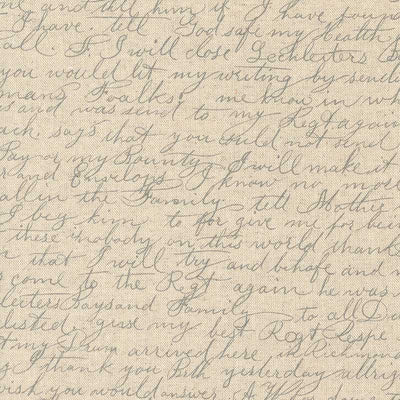 me and tell him if I have found
I have tell God safe my health
all. If I will close Lechleiters
you would let my writing by send
mans Foalks me know in wh
s and was send to my Regt again
ack says that you could not send
Pay or my Bounty I will make it
r and Envelops I know no more
all in the Family tell Mother
I beg him to for give me for bei
these is nobody on this world thank
n that I will try and behafe and
s come to the Regt again he was
lecters Paysand Family to all I
lusted, gras my best Regt Respe
t my Drum arrived here in Richmond
s I thank you Bsh yesterday allrig
wish you would answer. A W